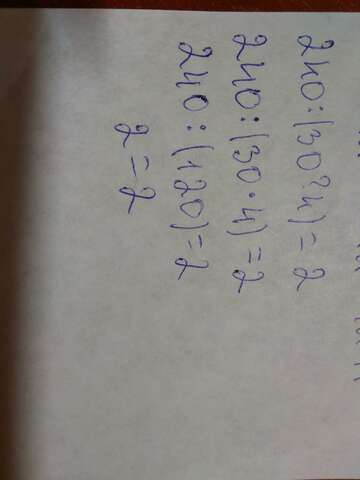 240:(30?4)=2
240:(30·4)=2
240:(120)=2
2=2